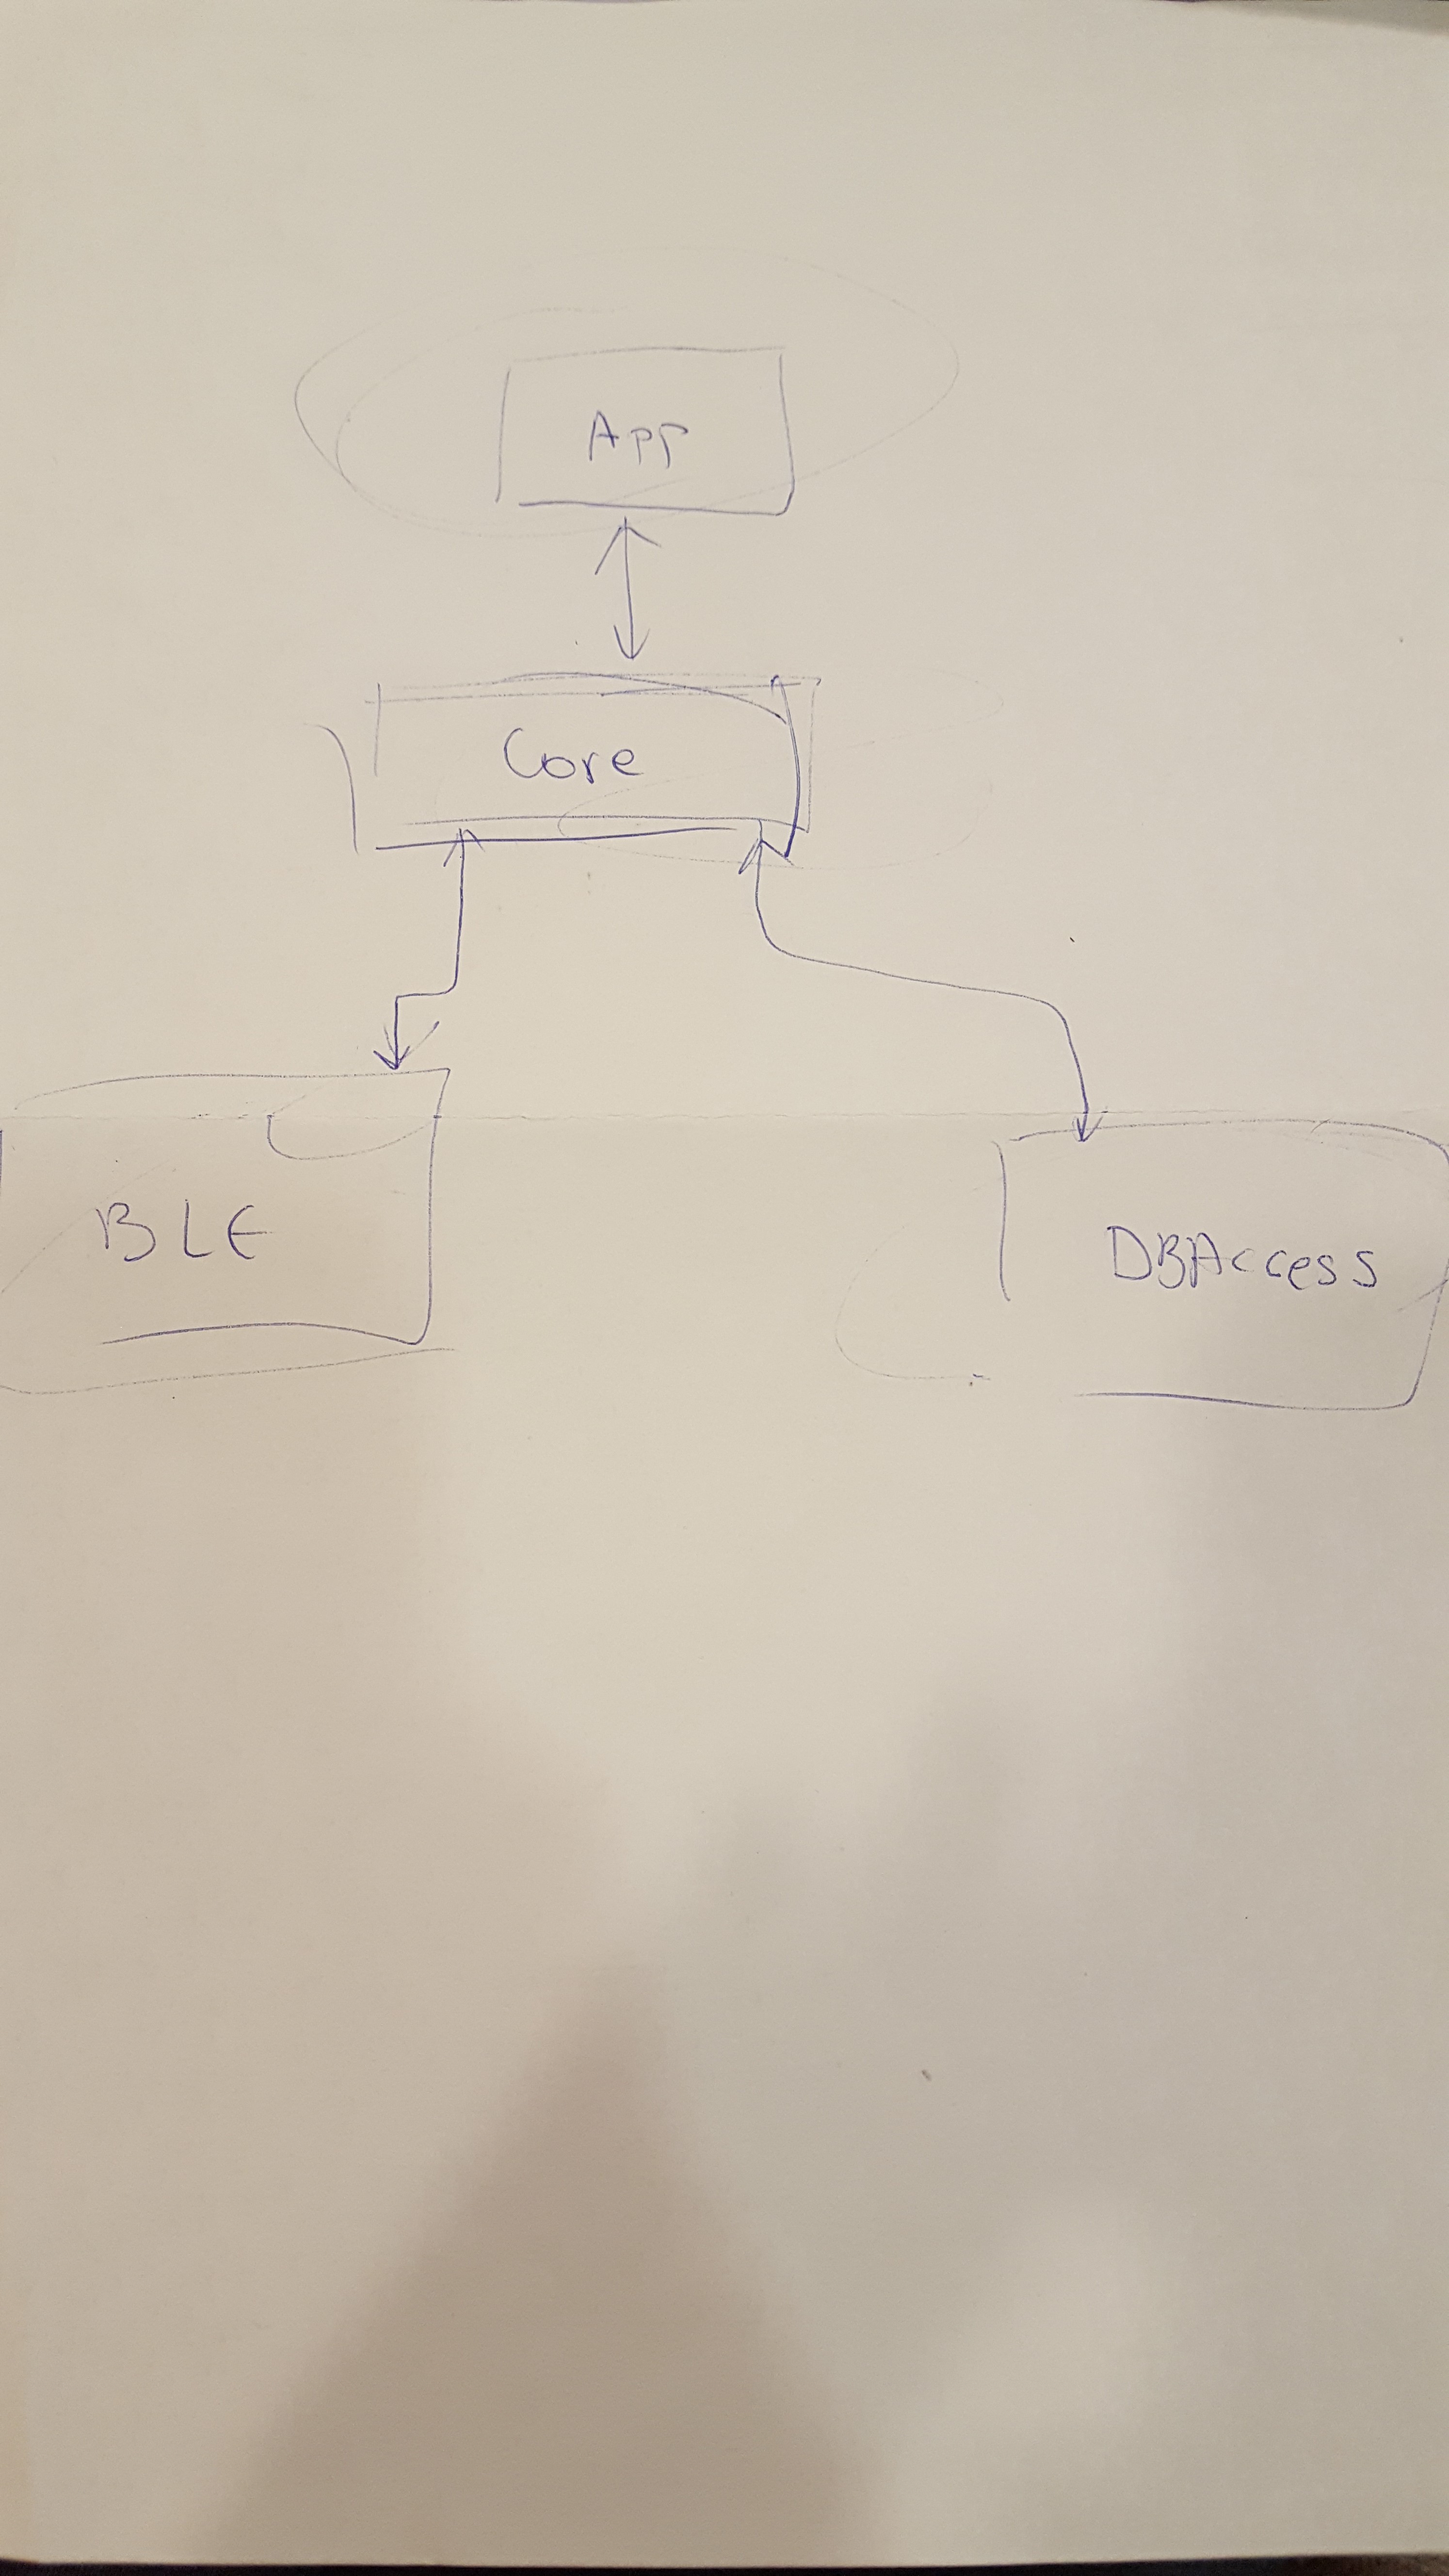 App
Core
BLE
DBAccess